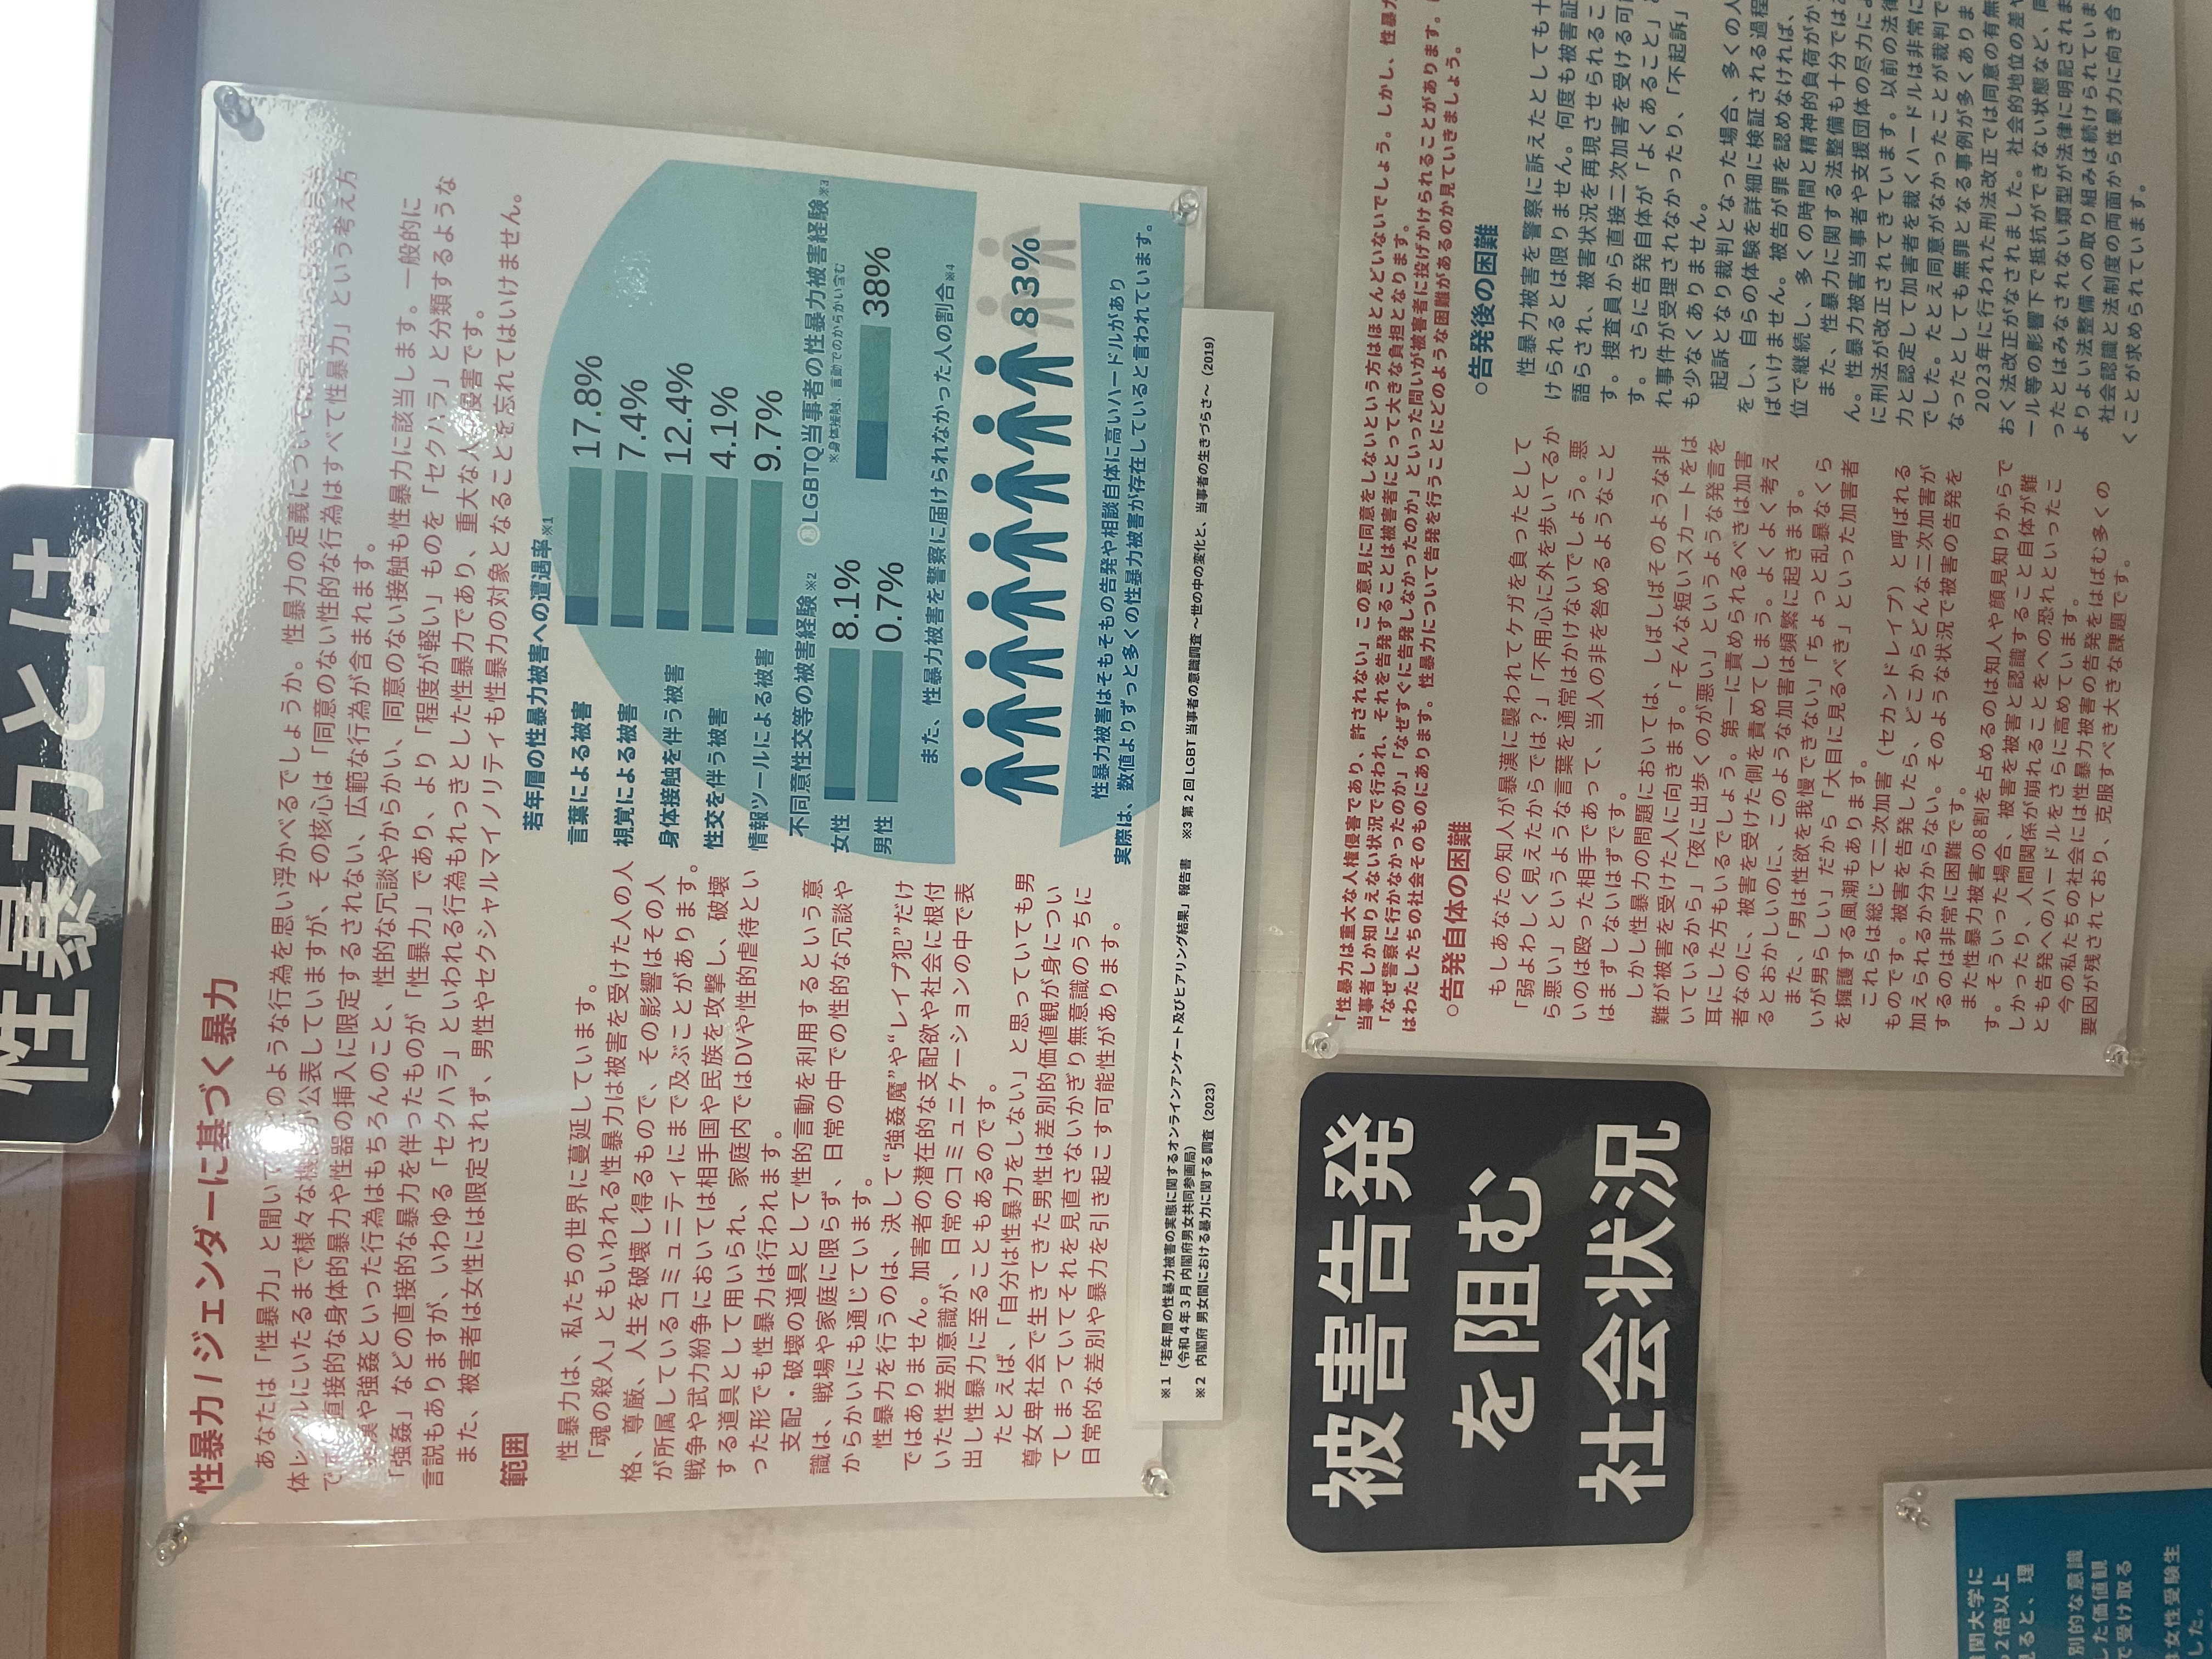 性暴力とは
性暴力 / ジェンダーに基づく暴力
あなたは「性暴力」と聞いてどのような行為を思い浮かべるでしょうか。性暴力の定義につい
体レベルにいたるまで様々な機関が公表していますが、その核心は「同意のない性的な行為はすべて性暴力」という考え方
直接的な身体的暴力や性器の挿入に限定するされない、広範な行為が含まれます。
や強姦といった行為はもちろんのこと、性的な冗談やからかい、同意のない接触も性暴力に該当します。一般的に
「強姦」などの直接的な暴力を伴ったものが「性暴力」であり、より「程度が軽い」ものを「セクハラ」と分類するような
言説もありますが、いわゆる「セクハラ」といわれる行為もれっきとした性暴力であり、重大な人権侵害です。
また、被害者は女性には限定されず、男性やセクシャルマイノリティも性暴力の対象となることを忘れてはいけません。
範囲
性暴力は、私たちの世界に蔓延しています。
「魂の殺人」ともいわれる性暴力は被害を受けた人の人
格、尊厳、人生を破壊し得るもので、その影響はその人
が所属しているコミュニティにまで及ぶことがあります。
戦争や武力紛争においては相手国や民族を攻撃し、破壊
する道具として用いられ、家庭内ではDVや性的虐待とい
った形でも性暴力は行われます。
支配・破壊の道具として性的言動を利用するという意
識は、戦場や家庭に限らず、日常の中での性的な冗談や
からかいにも通じています。
性暴力を行うのは、決して“強姦魔”や“レイプ犯”だけ
ではありません。加害者の潜在的な支配欲や社会に根付
いた性差別意識が、日常のコミュニケーションの中で表
出し性暴力に至ることもあるのです。
たとえば、「自分は性暴力をしない」と思っていても男
尊女卑社会で生きてきた男性は差別的価値観が身につい
てしまっていてそれを見直さないかぎり無意識のうちに
日常的な差別や暴力を引き起こす可能性があります。
若年層の性暴力被害への遭遇率※1
言葉による被害 17.8%
視覚による被害 7.4%
身体接触を伴う被害 12.4%
性交を伴う被害 4.1%
情報ツールによる被害 9.7%
不同意性交等の被害経験※2
女性 8.1%
男性 0.7%
LGBTQ当事者の性暴力被害経験※3
※身体接触、言動でのからかい含む
38%
また、性暴力被害を警察に届けられなかった人の割合※4
83%
性暴力被害はそもそもの告発や相談自体に高いハードルがあり
実際は、数値よりずっと多くの性暴力被害が存在していると言われています。
※1 「若年層の性暴力被害の実態に関するオンラインアンケート及びヒアリング結果」報告書
(令和4年3月 内閣府男女共同参画局)
※2 内閣府 男女間における暴力に関する調査 (2023)
※3 第2回LGBT当事者の意識調査 ～世の中の変化と、当事者の生きづらさ～ (2019)
被害告発
を阻む
社会状況
「性暴力は重大な人権侵害であり、許されない」この意見に同意をしないという方はほとんどいないでしょう。しかし、性暴力
当事者しか知りえない状況で行われ、それを告発することは被害者にとって大きな負担となります。
「なぜ警察に行かなかったのか」「なぜすぐに告発しなかったのか」といった問いが被害者に投げかけられることがあります。
はわたしたちの社会そのものにあります。性暴力について告発を行うことにどのような困難があるのか見ていきましょう。
○告発自体の困難
もしあなたの知人が暴漢に襲われてケガを負ったとして
「弱よわしく見えたからでは？」「不用心に外を歩いてるか
ら悪い」というような言葉を通常はかけないでしょう。悪
いのは殴った相手であって、当人の非を咎めるようなこと
はまずしないはずです。
しかし性暴力の問題においては、しばしばそのような非
難が被害を受けた人に向きます。「そんな短いスカートをは
いているから」「夜に出歩くのが悪い」というような発言を
耳にした方もいるでしょう。第一に責められるべきは加害
者なのに、被害を受けた側を責めてしまう。よくよく考え
るとおかしいのに、このような加害は頻繁に起きます。
また、「男は性欲を我慢できない」「ちょっと乱暴なくら
いが男らしい」だから「大目に見るべき」といった加害者
を擁護する風潮もあります。
これらは総じて二次加害（セカンドレイプ）と呼ばれる
ものです。被害を告発したら、どこからどんな二次加害が
加えられるか分からない。そのような状況で被害の告発を
するのは非常に困難です。
また性暴力被害の8割を占めるのは知人や顔見知りからで
す。そういった場合、被害を被害と認識すること自体が難
しかったり、人間関係が崩れることをへの恐れといったこ
とも告発へのハードルをさらに高めています。
今の私たちの社会には性暴力被害の告発をはばむ多くの
要因が残されており、克服すべき大きな課題です。
○告発後の困難
性暴力被害を警察に訴えたとしても十
けられるとは限りません。何度も被害証
語らされ、被害状況を再現させられるこ
す。捜査員から直接二次加害を受ける可
す。さらに告発自体が「よくあること」と
れ事件が受理されなかったり、「不起訴」
も少なくありません。
起訴となり裁判となった場合、多くの人
をし、自らの体験を詳細に検証される過程
ばいけません。被告が罪を認めなければ、
位で継続し、多くの時間と精神的負荷がか
また、性暴力に関する法整備も十分では
ん。性暴力被害当事者や支援団体の尽力によ
に刑法が改正されてきています。以前の法律
力と認定して加害者を裁くハードルは非常に
でした。たとえ同意がなかったことが裁判で
なったとしても無罪となる事例が多くありま
2023年に行われた刑法改正では同意の有無
おく法改正がなされました。社会的地位の差や
ール等の影響下で抵抗ができない状態など、同
ったとはみなされない類型が法律に明記されま
よりよい法整備への取り組みは続けられていま
社会認識と法制度の両面から性暴力に向き合
くことが求められています。
関大学に
2倍以上
ると、理
別的な意識
した価値観
で受け取る
女性受験生
した。